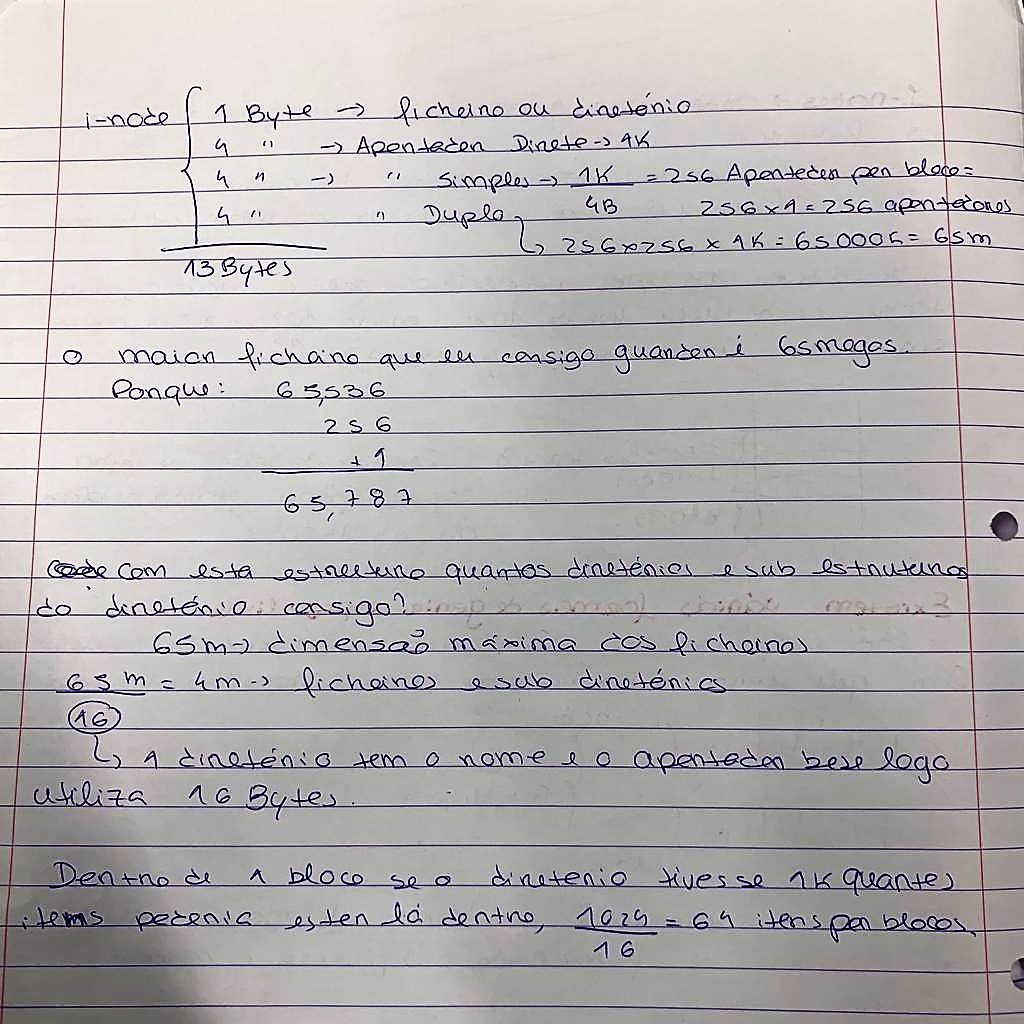 i-node { 1 Byte → ficheiro ou diretório
4 " → Apontador Direto → 1K
4 " → " Simples → 1K / 4B = 256 Apontador por bloco = 256 x 1 = 256 apontadores
4 " " Duplo ↳ 256 x 256 x 1K = 65000K = 65m
13 Bytes
O maior ficheiro que eu consigo guardar é 65megas.
Porque: 65,536
256
+ 1
65,787
Com esta estrutura quantos diretórios e sub estruturas
do diretório consigo?
65m → dimensão máxima dos ficheiros
65m / 16 = 4m → ficheiros e sub diretórios
↳ 1 diretório tem o nome e o apontador base logo
utiliza 16 Bytes.
Dentro de 1 bloco se o diretorio tivesse 1K quantos
items poderia estar lá dentro, 1024 / 16 = 64 itens por blocos.